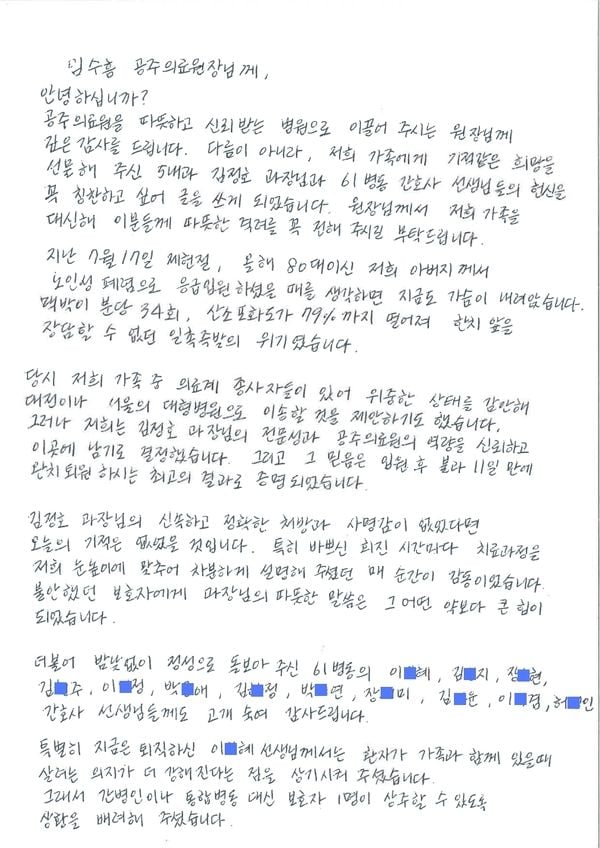 임수흠 공주의료원장님께,
안녕하십니까?
공주의료원을 따뜻하고 신뢰받는 병원으로 이끌어 주시는 원장님께
깊은 감사를 드립니다. 다름이 아니라, 저희 가족에게 기적같은 희망을
선물해 주신 5내과 김정호 과장님과 61병동 간호사 선생님들의 헌신을
꼭 칭찬하고 싶어 글을 쓰게 되었습니다. 원장님께서 저희 가족을
대신해 이분들께 따뜻한 격려를 꼭 전해 주시길 부탁드립니다.
지난 7월 17일 제헌절, 올해 80대이신 저희 아버지께서
노인성 폐렴으로 응급입원 하셨을 때를 생각하면 지금도 가슴이 내려앉습니다.
맥박이 분당 34회, 산소포화도가 79%까지 떨어져 한치 앞을
장담할 수 없던 일촉즉발의 위기였습니다.
당시 저희 가족 중 의료계 종사자들이 있어 위중한 상태를 감안해
대전이나 서울의 대형병원으로 이송할 것을 제안하기도 했습니다.
그러나 저희는 김정호 과장님의 전문성과 공주의료원의 역량을 신뢰하고
이곳에 남기로 결정했습니다. 그리고 그 믿음은 입원 후 불과 11일 만에
완치 퇴원 하시는 최고의 결과로 증명되었습니다.
김정호 과장님의 신속하고 정확한 처방과 사명감이 없었다면
오늘의 기적은 없었을 것입니다. 특히 바쁘신 회진 시간마다 치료과정을
저희 눈높이에 맞추어 차분하게 설명해 주셨던 매 순간이 감동이었습니다.
불안했던 보호자에게 과장님의 따뜻한 말씀은 그 어떤 약보다 큰 힘이
되었습니다.
더불어 밤낮없이 정성으로 돌보아 주신 61병동의 이 혜, 김 지, 장 현,
김 주, 이 정, 박 애, 김 정, 박 연, 장 미, 김 윤, 이 경, 허 인
간호사 선생님들께도 고개 숙여 감사드립니다.
특별히 지금은 퇴직하신 이 혜 선생님께서는 환자가 가족과 함께 있을때
살려는 의지가 더 강해진다는 점을 상기시켜 주셨습니다.
그래서 간병인이나 통합병동 대신 보호자 1명이 상주할 수 있도록
상황을 배려해 주셨습니다.